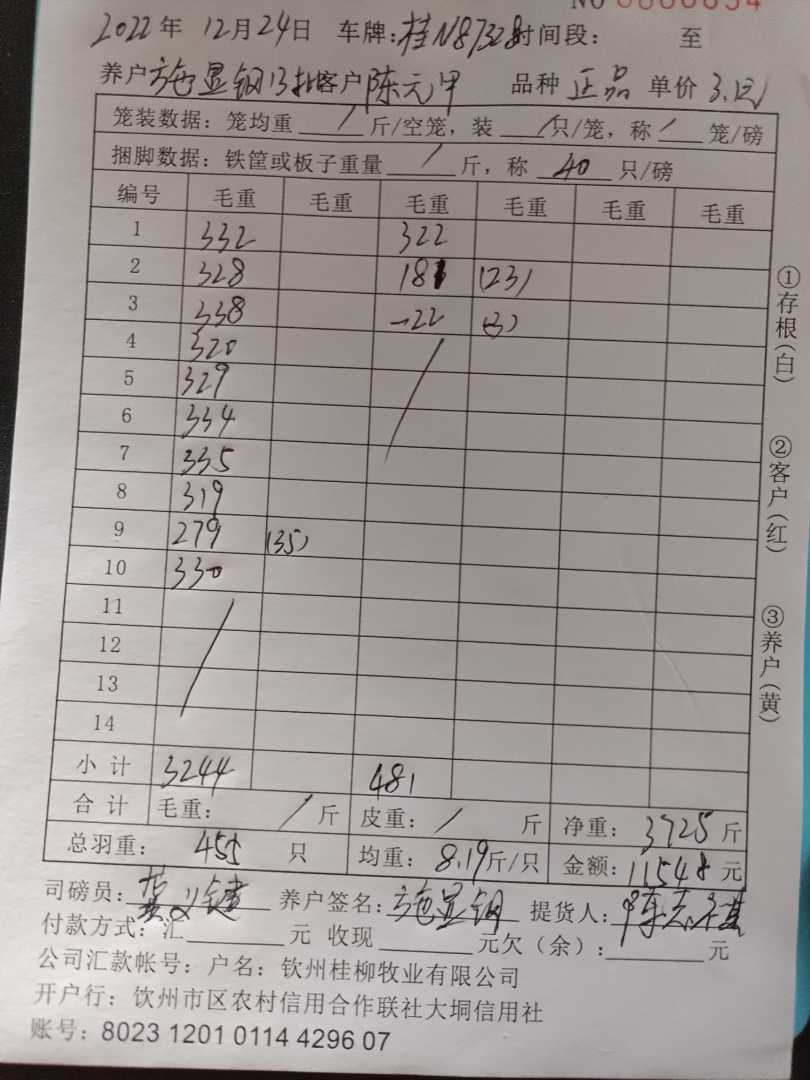 2022年 12月24日 车牌:桂N87328时间段: 至
养户施显钢13批客户陈元甲 品种 正品 单价 3.1元
笼装数据:笼均重 / 斤/空笼,装 / 只/笼,称 / 笼/磅
捆脚数据:铁筐或板子重量 / 斤,称 40 只/磅
编号 毛重 毛重 毛重 毛重 毛重 毛重
1 332 322
2 328 181 (23)
3 338 -22 (3)
4 320
5 329
6 334
7 335
8 319
9 279 (35)
10 330
11
12
13
14
小计 3244 481
合计 毛重: / 斤 皮重: / 斤 净重: 3725 斤
总羽重: 455 只 均重: 8.19斤/只 金额: 11548 元
司磅员: 养户签名:施显钢 提货人:
付款方式:汇 元 收现 元欠(余): 元
公司汇款帐号:户名:钦州桂柳牧业有限公司
开户行:饮州市区农村信用合作联社大垌信用社
账号:8023 1201 0114 4296 07
①存根(白) ②客户(红) ③养户(黄)